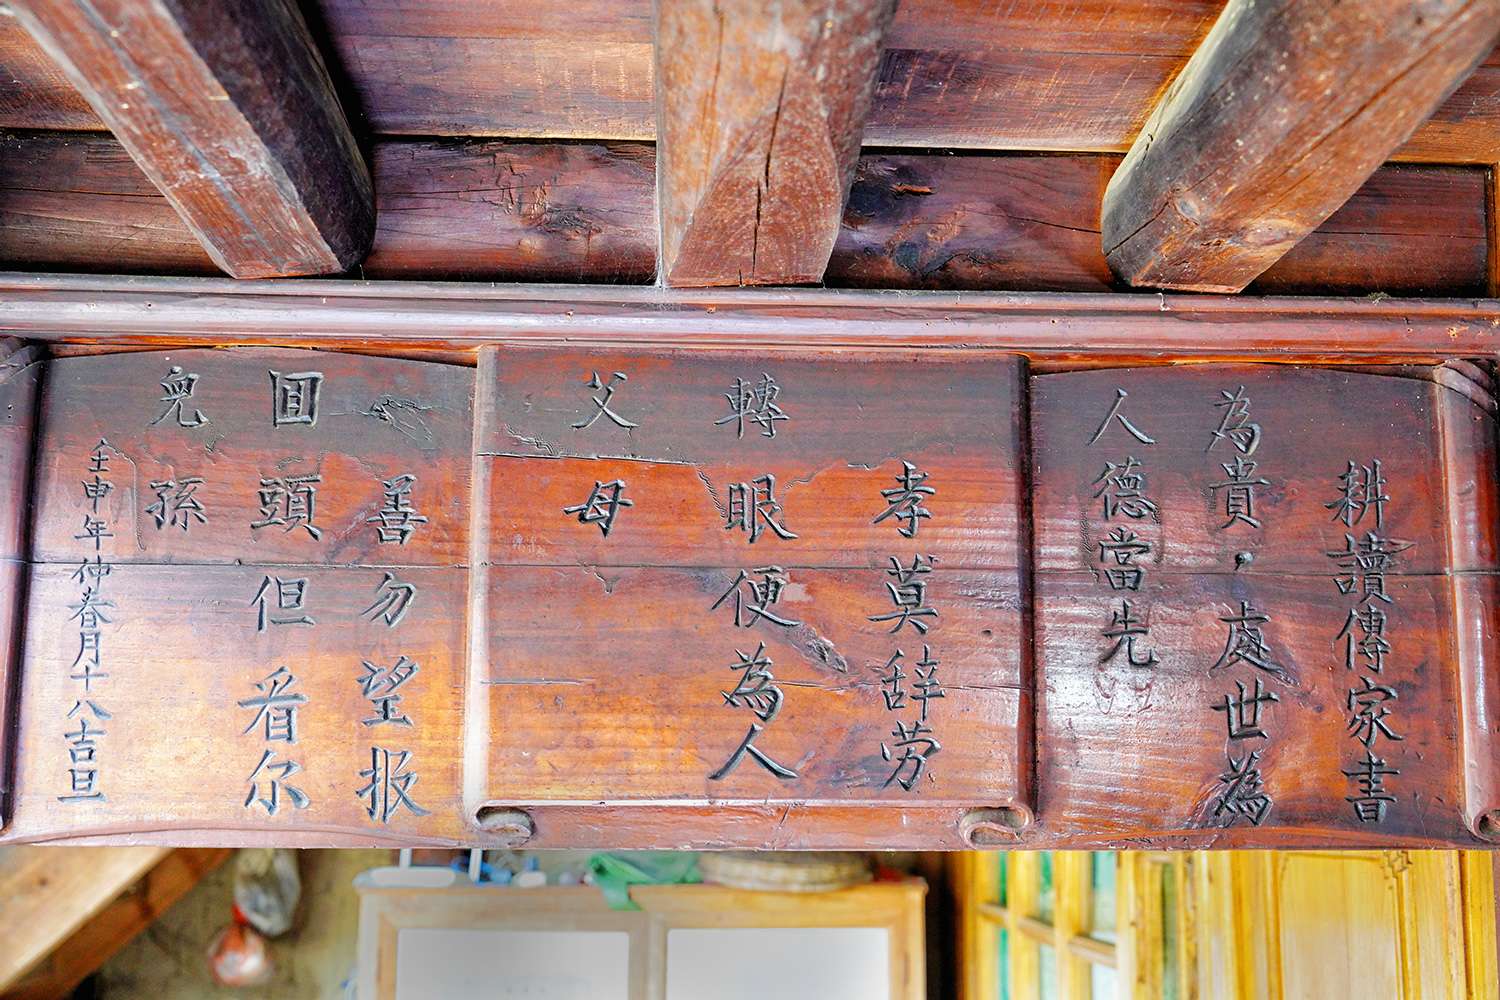 耕讀傳家書
為貴，處世為
人德當先
孝莫辞劳
轉眼便為人
父母
善勿望报
囬頭但看尔
兒孫
壬申年仲春月十八吉旦